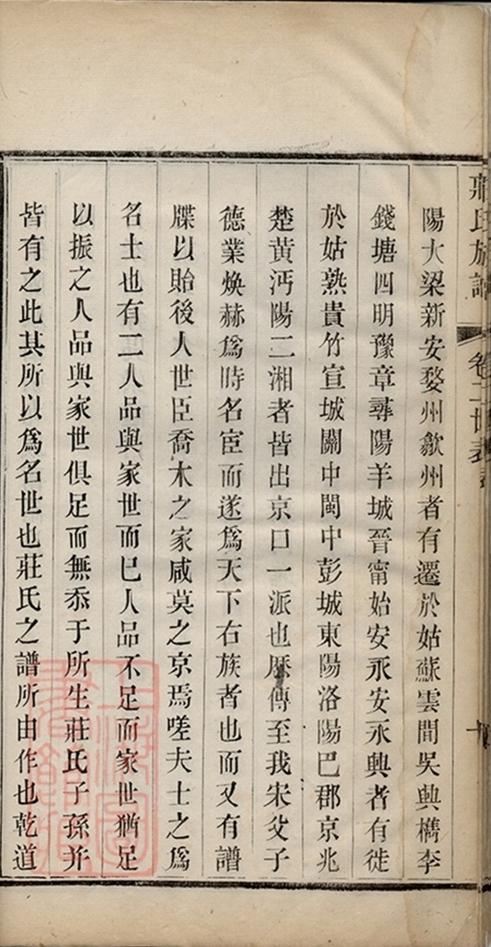 莊氏族譜 卷二世表 十
陽大梁新安婺州歙州者有遷於姑蘇雲間吳興檇李
錢塘四明豫章尋陽羊城晉甯始安永安永興者有徙
於姑熟貴竹宣城關中閩中彭城東陽洛陽巴郡京兆
楚黃沔陽二湘者皆出京口一派也厯傳至我宋父子
德業煥赫爲時名宦而遂爲天下右族者也而又有譜
牒以貽後人世臣喬木之家咸莫之京焉嗟夫士之爲
名士也有二人品與家世而已人品不足而家世猶足
以振之人品與家世俱足而無忝于所生莊氏子孫并
皆有之此其所以爲名世也莊氏之譜所由作也乾道